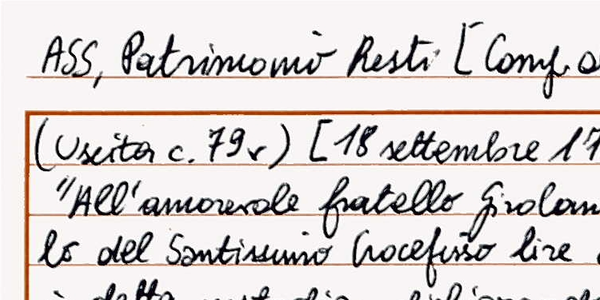 ASS, Patrimonio Resti [Comp.
(Uscita c. 79v) [18 settembre 17
"All'amorevole fratello Girolam
lo del Santissimo Crocefisso lire
detta